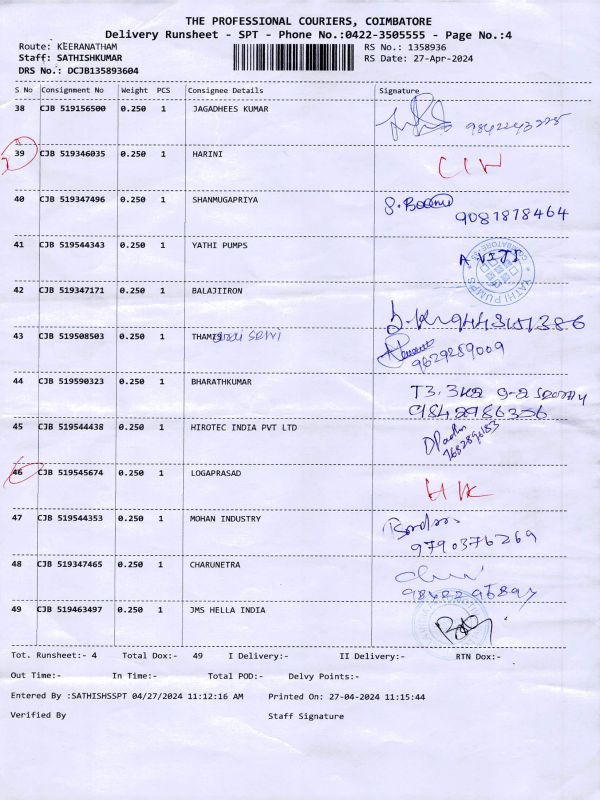 THE PROFESSIONAL COURIERS, COIMBATORE
Delivery Runsheet - SPT - Phone No.:0422-3505555 - Page No.:4
Route: KEERANATHAM RS No.: 1358936
Staff: SATHISHKUMAR RS Date: 27-Apr-2024
DRS No.: DCJB135893604
S No Consignment No Weight PCS Consignee Details Signature
38 CJB 519156500 0.250 1 JAGADHEES KUMAR
39 CJB 519346035 0.250 1 HARINI
40 CJB 519347496 0.250 1 SHANMUGAPRIYA
9087878464
41 CJB 519544343 0.250 1 YATHI PUMPS
YATHI PUMPS
42 CJB 519347171 0.250 1 BALAJIIRON
43 CJB 519508503 0.250 1 THAMI
9629259009
44 CJB 519590323 0.250 1 BHARATHKUMAR
45 CJB 519544438 0.250 1 HIROTEC INDIA PVT LTD
46 CJB 519545674 0.250 1 LOGAPRASAD
47 CJB 519544353 0.250 1 MOHAN INDUSTRY
9790376269
48 CJB 519347465 0.250 1 CHARUNETRA
49 CJB 519463497 0.250 1 JMS HELLA INDIA
Tot. Runsheet:- 4 Total Dox:- 49 I Delivery:- II Delivery:- RTN Dox:-
Out Time:- In Time:- Total POD:- Delvy Points:-
Entered By :SATHISHSSPT 04/27/2024 11:12:16 AM Printed On: 27-04-2024 11:15:44
Verified By Staff Signature